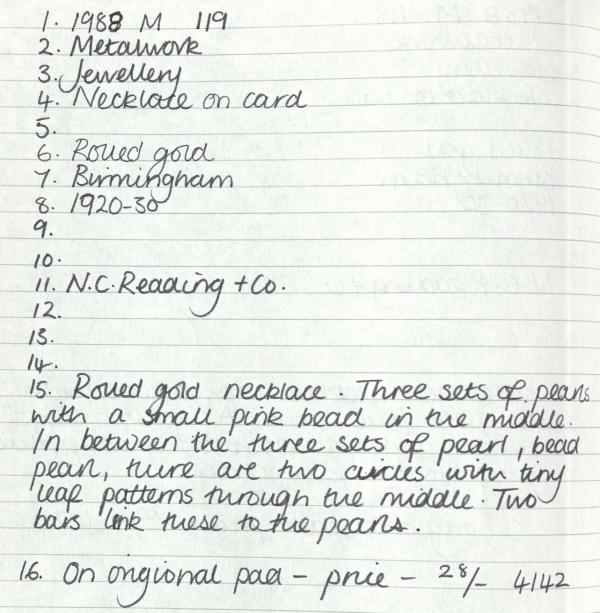 1. 1988 M 119
2. Metalwork
3. Jewellery
4. Necklate on card
5.
6. Rolled gold
7. Birmingham
8. 1920-30
9.
10.
11. N.C. Reading + Co.
12.
13.
14.
15. Rolled gold necklace. Three sets of pearls
with a small pink bead in the middle.
In between the three sets of pearl, bead
pearl, there are two circles with tiny
leaf patterns through the middle. Two
bars link these to the pearls.
16. On ongional pad - price - 28/- 4142